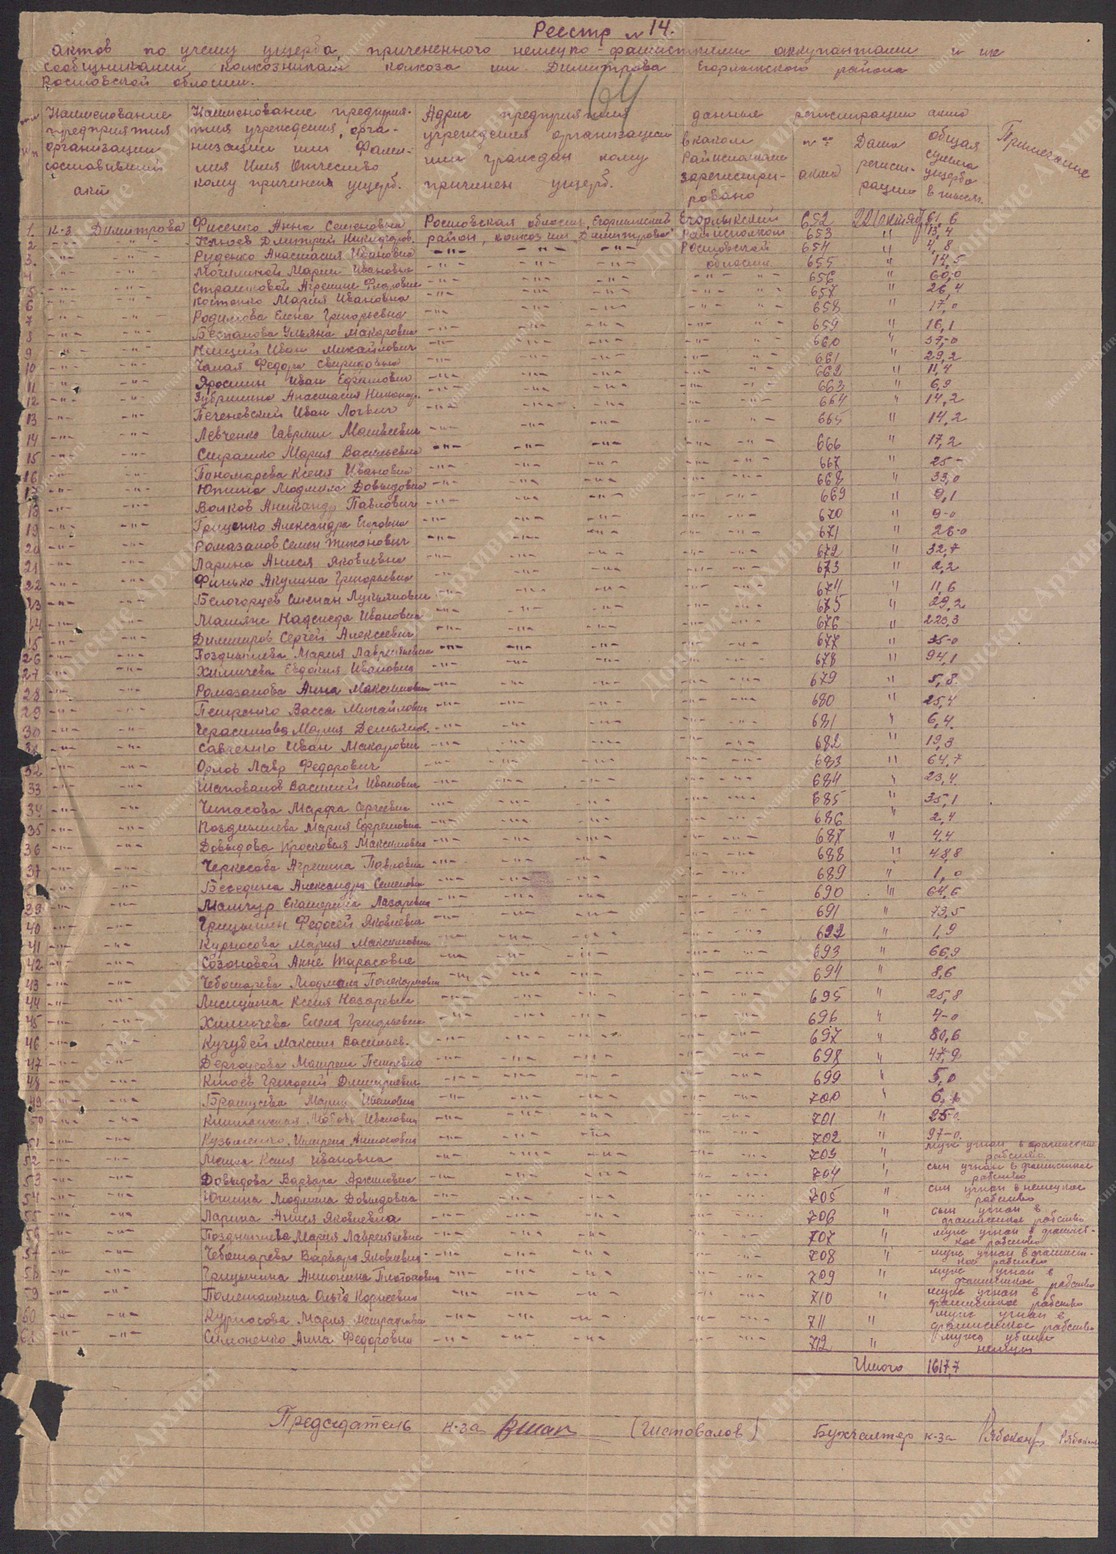 Реестр № 14.
актов по учету ущерба, причененного немецко-фашисткими оккупантами и их
сообщниками колхозникам колхоза им. Димитрова Егорлыкского района
Ростовской области.
64
Наименование предприятия организации составивший акт
Наименование предприятия учреждения, организации или Фамилия Имя Отчество кому причинен ущерб.
Адрес предприятия учреждения организации или граждан кому причинен ущерб.
данные регистрации акта
в каком Райисполкоме зарегистрировано
№ акта
Дата регистрации
общая сумма ущерба в тысяч.
Примечание
1. к-з Димитрова Фисенко Анна Семеновна Ростовская область, Егорлыкский Егорлыкский 652 61,6
2 -"- -"- Клюев Дмитрий район, колхоз им. Димитрова Райисполком 653 " 13,4
3. -"- -"- Руденко Анастасия Ивановна -"- -"- Ростовской 654 " 4,8
4 -"- -"- Мария Ивановна -"- -"- области 655 " 14,5
5 -"- -"- Агрепине Федоровне -"- -"- 656 " 60,0
6 -"- -"- Костенко Мария Ивановна -"- -"- 657 " 26,4
7 -"- -"- Родимова Елена Григорьевна -"- -"- 658 " 17,0
8 -"- -"- Беспалова Ульяна Макаровна -"- -"- 659 " 16,1
9 -"- -"- Иван Михайлович -"- -"- 660 " 37-0
10 -"- -"- Федора -"- -"- 661 " 29,2
11 -"- -"- Ярошин Иван Ефимович -"- -"- 662 " 11,4
12 -"- -"- Зубрилина Анастасия -"- -"- 663 " 6,9
13 -"- -"- Печеневский Иван Логвич -"- -"- 664 " 14,2
14 -"- -"- Левченко Гаврил Матвеевич -"- -"- 665 " 14,2
15 -"- -"- Сирашко Мария Васильевна -"- -"- 666 " 17,2
16 -"- -"- Пономарева Ксеня Ивановна -"- -"- 667 " 25-
17 -"- -"- Юшина Людмила Довыдовна -"- -"- 668 " 33,0
18 -"- -"- Волков Александр Павлович -"- -"- 669 " 9,1
19 -"- -"- Гриценко Александра -"- -"- 670 " 9-0
20 -"- -"- Ромазанов Семен Тихонович -"- -"- 671 " 28-0
21 -"- -"- Ларина Анися Яковлевна -"- -"- 672 " 32,7
22 -"- -"- Финько Акулина Григорьевна -"- -"- 673 " 2,2
23 -"- -"- Белогорцев Степан Лукьянович -"- -"- 674 " 11,6
24 -"- -"- Надежда Ивановна -"- -"- 675 " 29,2
25 -"- -"- Димитров Сергей Алексеевич -"- -"- 676 " 220,3
26 -"- -"- Позднышева Мария Лаврентьевна -"- -"- 677 " 35-0
27 -"- -"- Химичева Евдокия Ивановна -"- -"- 678 " 94,1
28 -"- -"- Ромазанова Анна Максимовна -"- -"- 679 " 5,8
29 -"- -"- Петренко Васса Михайловна -"- -"- 680 " 25,4
30 -"- -"- Герасимова Мария -"- -"- 681 " 6,4
31 -"- -"- Савченко Иван Макарович -"- -"- 682 " 19,3
32 -"- -"- Орлов Лавр Федорович -"- -"- 683 " 64,7
33 -"- -"- Шаповалов Василий Иванович -"- -"- 684 " 23,4
34 -"- -"- Марфа Сергеевна -"- -"- 685 " 35,1
35 -"- -"- Позднышева Мария Ефремовна -"- -"- 686 " 2,4
36 -"- -"- Довыдова Просковья Максимовна -"- -"- 687 " 4,4
37 -"- -"- Черкесова Агрепина Павловна -"- -"- 688 " 48,8
-"- -"- Беседина Александра Семеновна -"- -"- 689 " 1,0
39 -"- -"- Мамчур Екатерина Лазаревна -"- -"- 690 " 64,6
40 -"- -"- Грицынин Федосей Яковлевич -"- -"- 691 " 73,5
41 -"- -"- Курносова Мария Максимовна -"- -"- 692 " 1,9
42 -"- -"- Созоновой Анне Тарасовне -"- -"- 693 " 66,9
43 -"- -"- Чебошарева Людмила Поликарповна -"- -"- 694 " 8,6
44 -"- -"- Лисицина Ксеня Назаревна -"- -"- 695 " 25,8
45 -"- -"- Химичева Елена Григорьевна -"- -"- 696 " 4-0
46 -"- -"- Кучубей Максим Васильев. -"- -"- 697 " 80,6
47 -"- -"- Дергоусова Матрена Петровна -"- -"- 698 " 47,9
48 -"- -"- Клюев Григорий Дмитриевич -"- -"- 699 " 5,0
49 -"- -"- Мария Ивановна -"- -"- 700 " 6,1
50 -"- -"- Ивановна -"- -"- 701 " 25-0
51 -"- -"- Кузьменко Антоновна -"- -"- 702 " 97-0.
52 -"- -"- Ксеня Ивановна -"- -"- 703 " муж угнан в фашиское рабство
53 -"- -"- Довыдова Варвара -"- -"- 704 " сын угнан в фашисткое рабство
54 -"- -"- Юшина Людмила Довыдовна -"- -"- 705 " сын угнан в немецкое рабство
55 -"- -"- Ларина Анися Яковлевна -"- -"- 706 " сын угнан в фашисткое рабство
56 -"- -"- Позднышева Мария Лаврентьевна -"- -"- 707 " муж угнан в фашисткое рабство
57 -"- -"- Чебошарева Варвара Яковлевна -"- -"- 708 " муж угнан в фашисткое рабство
58 -"- -"- Грицынина Антонина Платоновна -"- -"- 709 " муж угнан в фашисткое рабство
59 -"- -"- Ольга Корнеевна -"- -"- 710 " муж угнан в фашисткое рабство
60 -"- -"- Курносова Мария -"- -"- 711 " муж угнан в фашисткое рабство
61 -"- -"- Симоненко Анна Федоровна -"- -"- 712 " мужа убили немцы
Итого 1617,7
Председатель к-за (Шаповалов) Бухгалтер к-за
Донские Архивы
donarch.ru